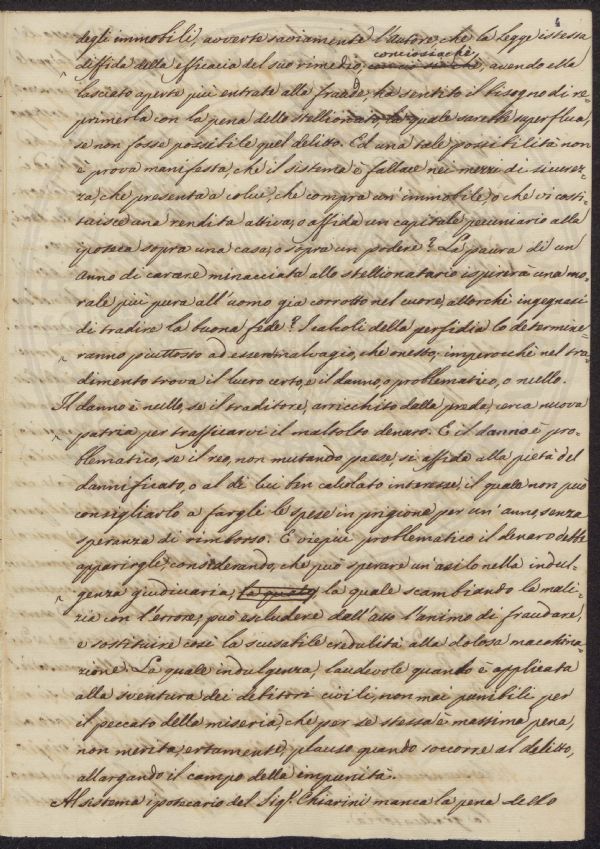 6
degli immobili, avverte saviamente l'autore, che la Legge istessa
diffida della efficacia del suo rimedio, conciosiachè, avendo ella
lasciato aperte più entrate alla fraude, ha sentito il bisogno di re=
primerla con la pena dello stellionato, la quale sarebbe superflua,
se non fosse possibile quel delitto. Ed una tale possibilità non
è prova manifesta che il sistema è fallace nei mezzi di sicurez=
za, che presenta a colui, che compra un'immobile, o che vi costi=
tuisce una rendita attiva, o affida un capitale pecuniario alla
ipoteca sopra una casa, o sopra un podere? La paura di un
anno di carcere minacciata allo stellionatario ispirerà una mo=
rale più pura all'uomo già corrotto nel cuore, allorchè ingegnasi
di tradire la buona fede? I calcoli della perfidia lo determine=
ranno piuttosto ad esser malvagio, che onesto, imperocchè nel tra=
dimento trova il lucro certo, e il danno, o problematico, o nullo.
Il danno è nullo, se il traditore, arricchito dalla preda, cerca nuova
patria per trafficarvi il maltolto denaro. E il danno è pro=
blematico, se il reo, non mutando paese, si affida alla pietà del
dannificato, o al di lui ben calcolato interesse, il quale non può
consigliarlo a fargli le spese in prigione per un'anno, senza
speranza di rimborso. E viepiù problematico il denaro debbe
apparirgli, considerando, che può sperare un'asilo nella indul=
genza giudiciaria, la quale, la quale scambiando la mali=
zia con l'errore, può escludere dall'atto l'animo di fraudare,
e sostituire così la scusabile credulità alla dolosa macchina=
zione. La quale indulgenza, laudevole quando è applicata
alla sventura dei debitori civili, non mai punibili per
il peccato della miseria, che per se stessa è massima pena,
non merita, certamente, plauso quando soccorre al delitto,
allargando il campo della impunità.
Al sistema ipotecario del Sig.r Chiarini manca la pena dello